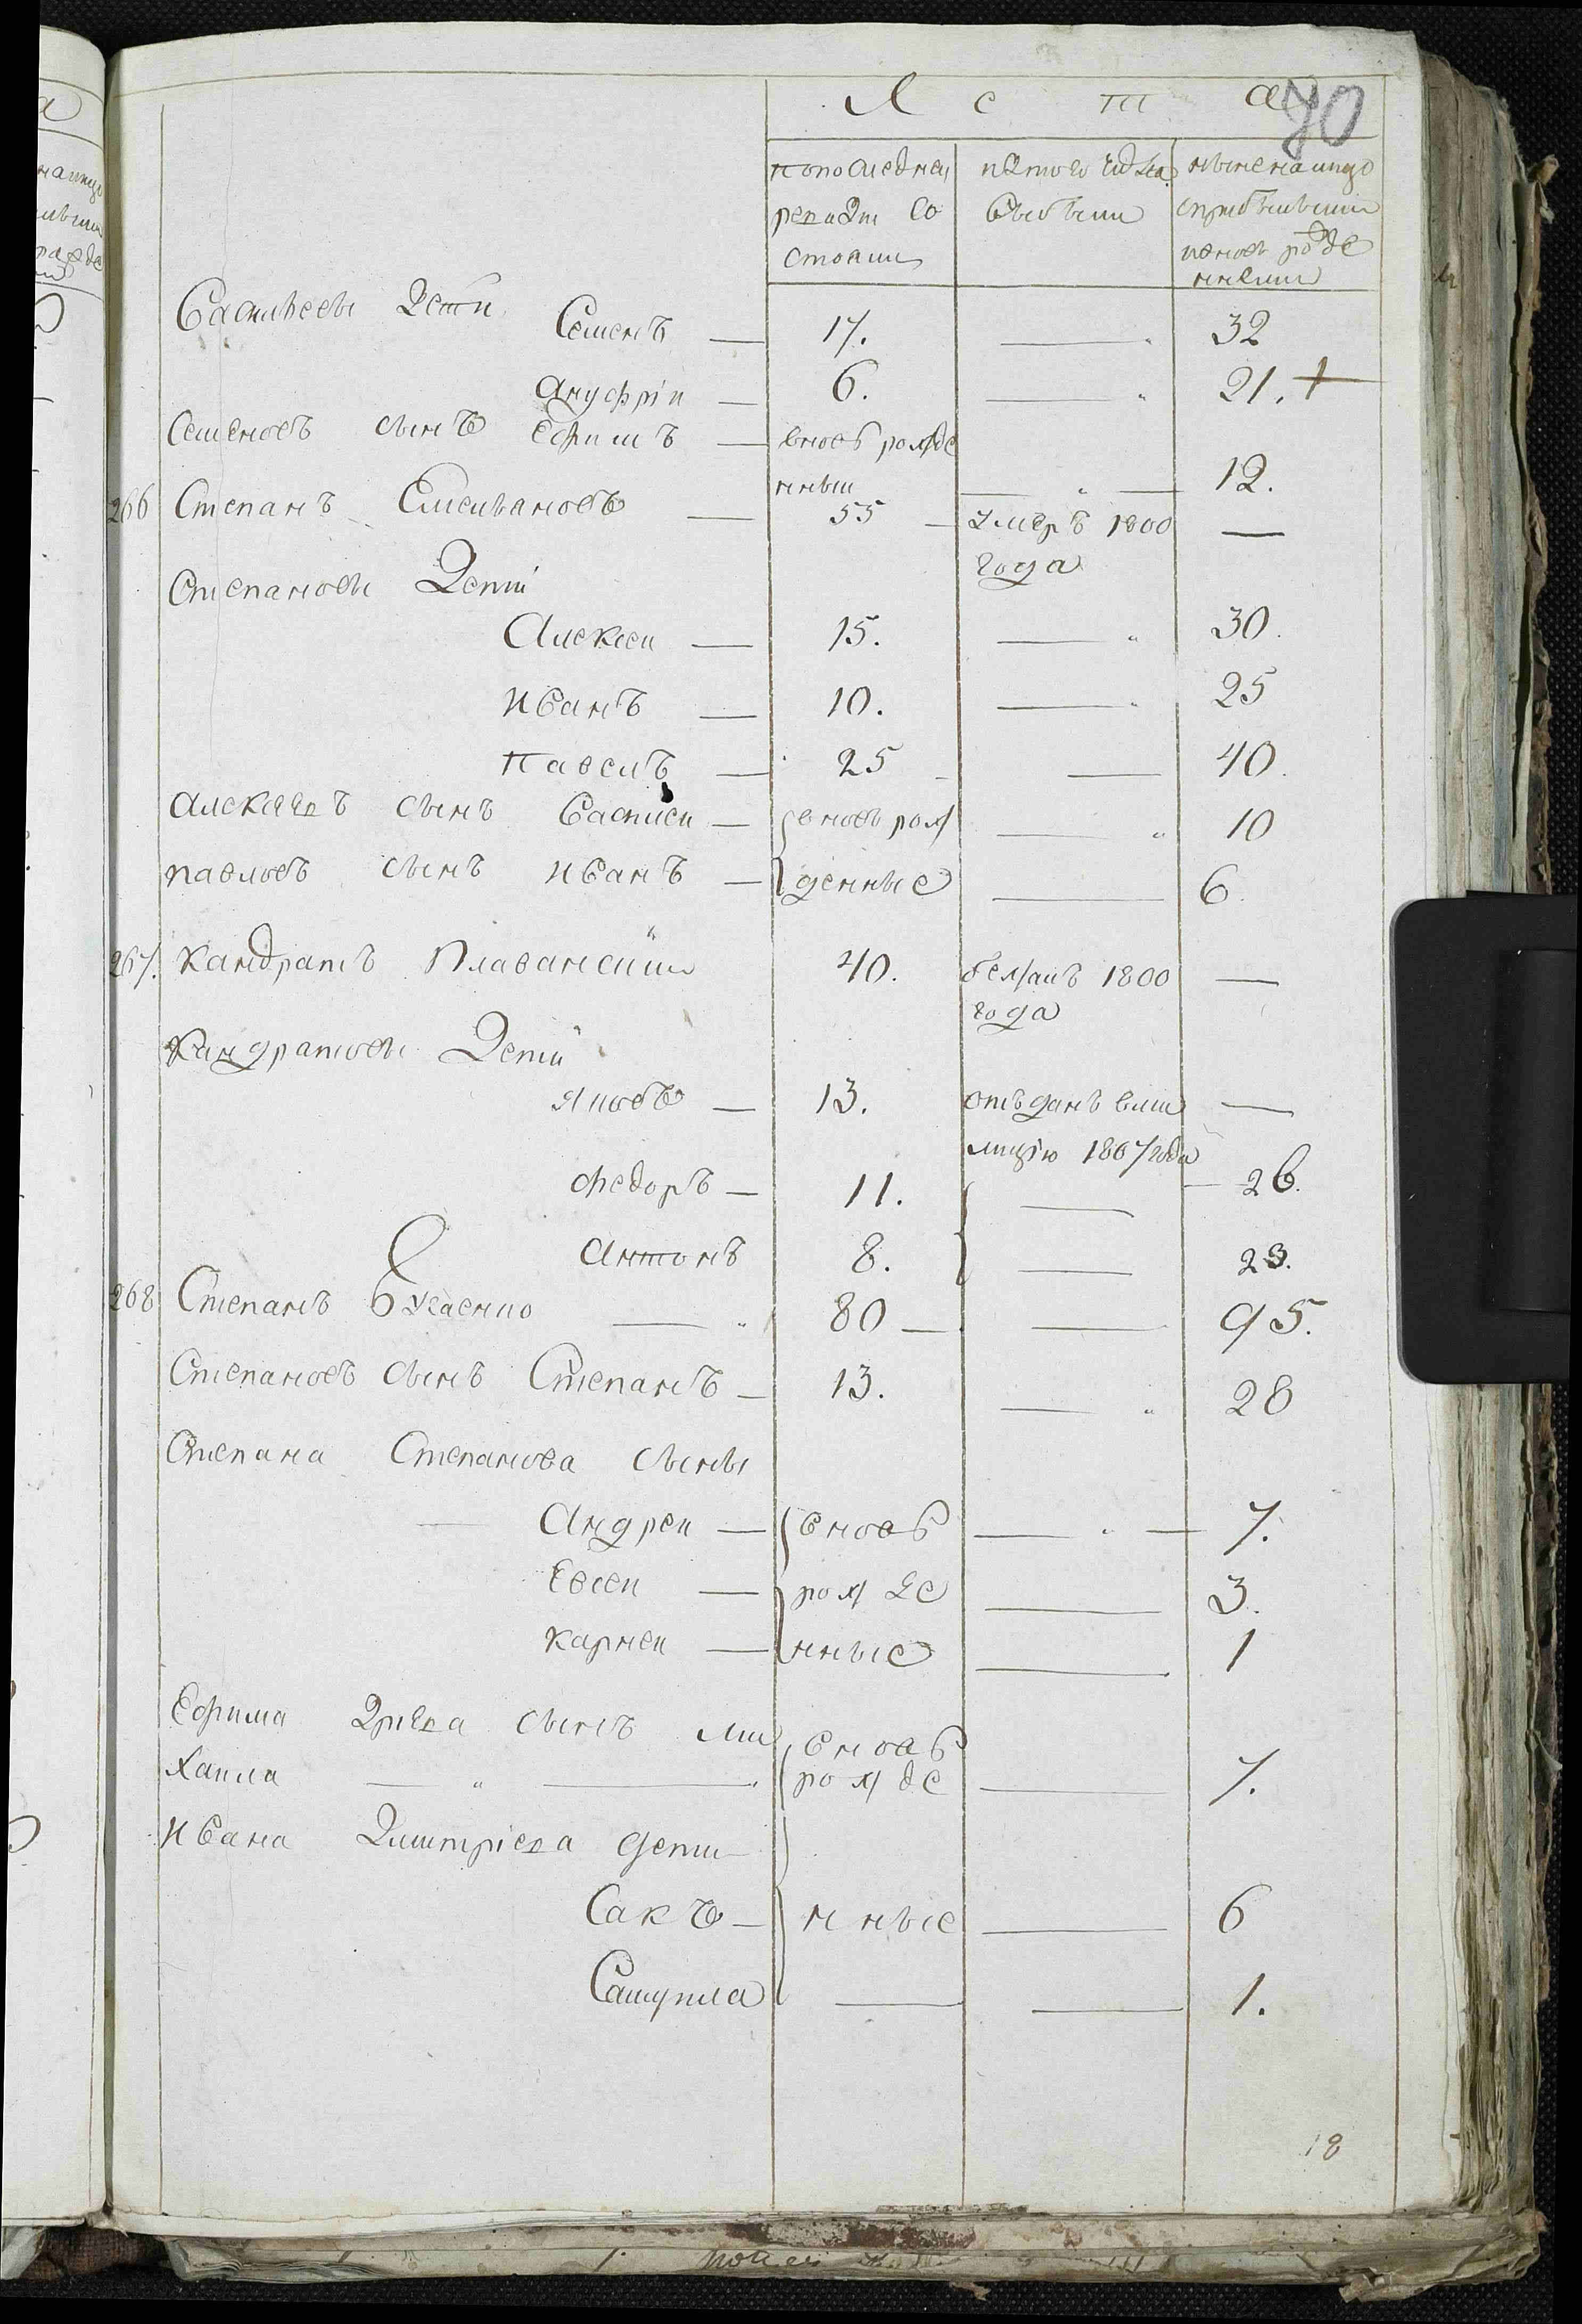 Л е т а
70
По последней
ревизии со
стояли
из того числа
выбыли
ныне налицо
с прибылыми
и вновь рожде
нными
Васильевы дети Семенъ — 17. — 32
Ануфрiи — 6. — 21. +
Семеновъ сынъ Ефимъ — вновь рожде
нныи — 12.
266 Степанъ Емельяновъ — 55 — умеръ 1800 —
года
Степановы дети
Алексеи — 15. — 30.
Иванъ — 10. — 25
Павелъ — 25 — 40.
Алексеевъ сынъ Василеи — вновь рож — 10
Павловъ сынъ Иванъ — денные — 6.
267. Кандратъ 40. бежалъ 1800 —
года
Кандратовы дети
Яковъ — 13. отъданъ вми —
лицiю 1807 года
Федоръ — 11. — 26.
Антонъ 8. — 23.
268 Степанъ — 80 — 95.
Степановъ сынъ Степанъ — 13. — 28
Степана Степанова сыны
Андреи — вновь — 7.
Евсеи — рожде — 3.
Карнеи — нные — 1
Ефима сынъ Ми вновь
хаила — рожде — 7.
Ивана Дмитрiева дети
Сакъ — нные — 6
Самуила — — 1.
18